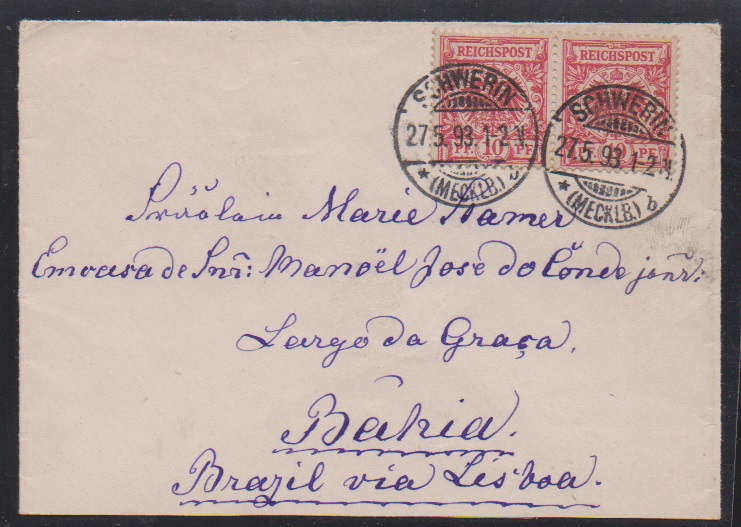 REICHSPOST REICHSPOST
SCHWERIN SCHWERIN
27.5.93.1-2.N. 27.5.93.1-2.N.
10 PF. 10 PF.
* (MECKLB.) b * (MECKLB.) b
Fräulein Marie Hamer
Em casa de Snr: Manoël Jose do Conde jonr:
Largo da Graça.
Bahia.
Brazil via Lisboa.